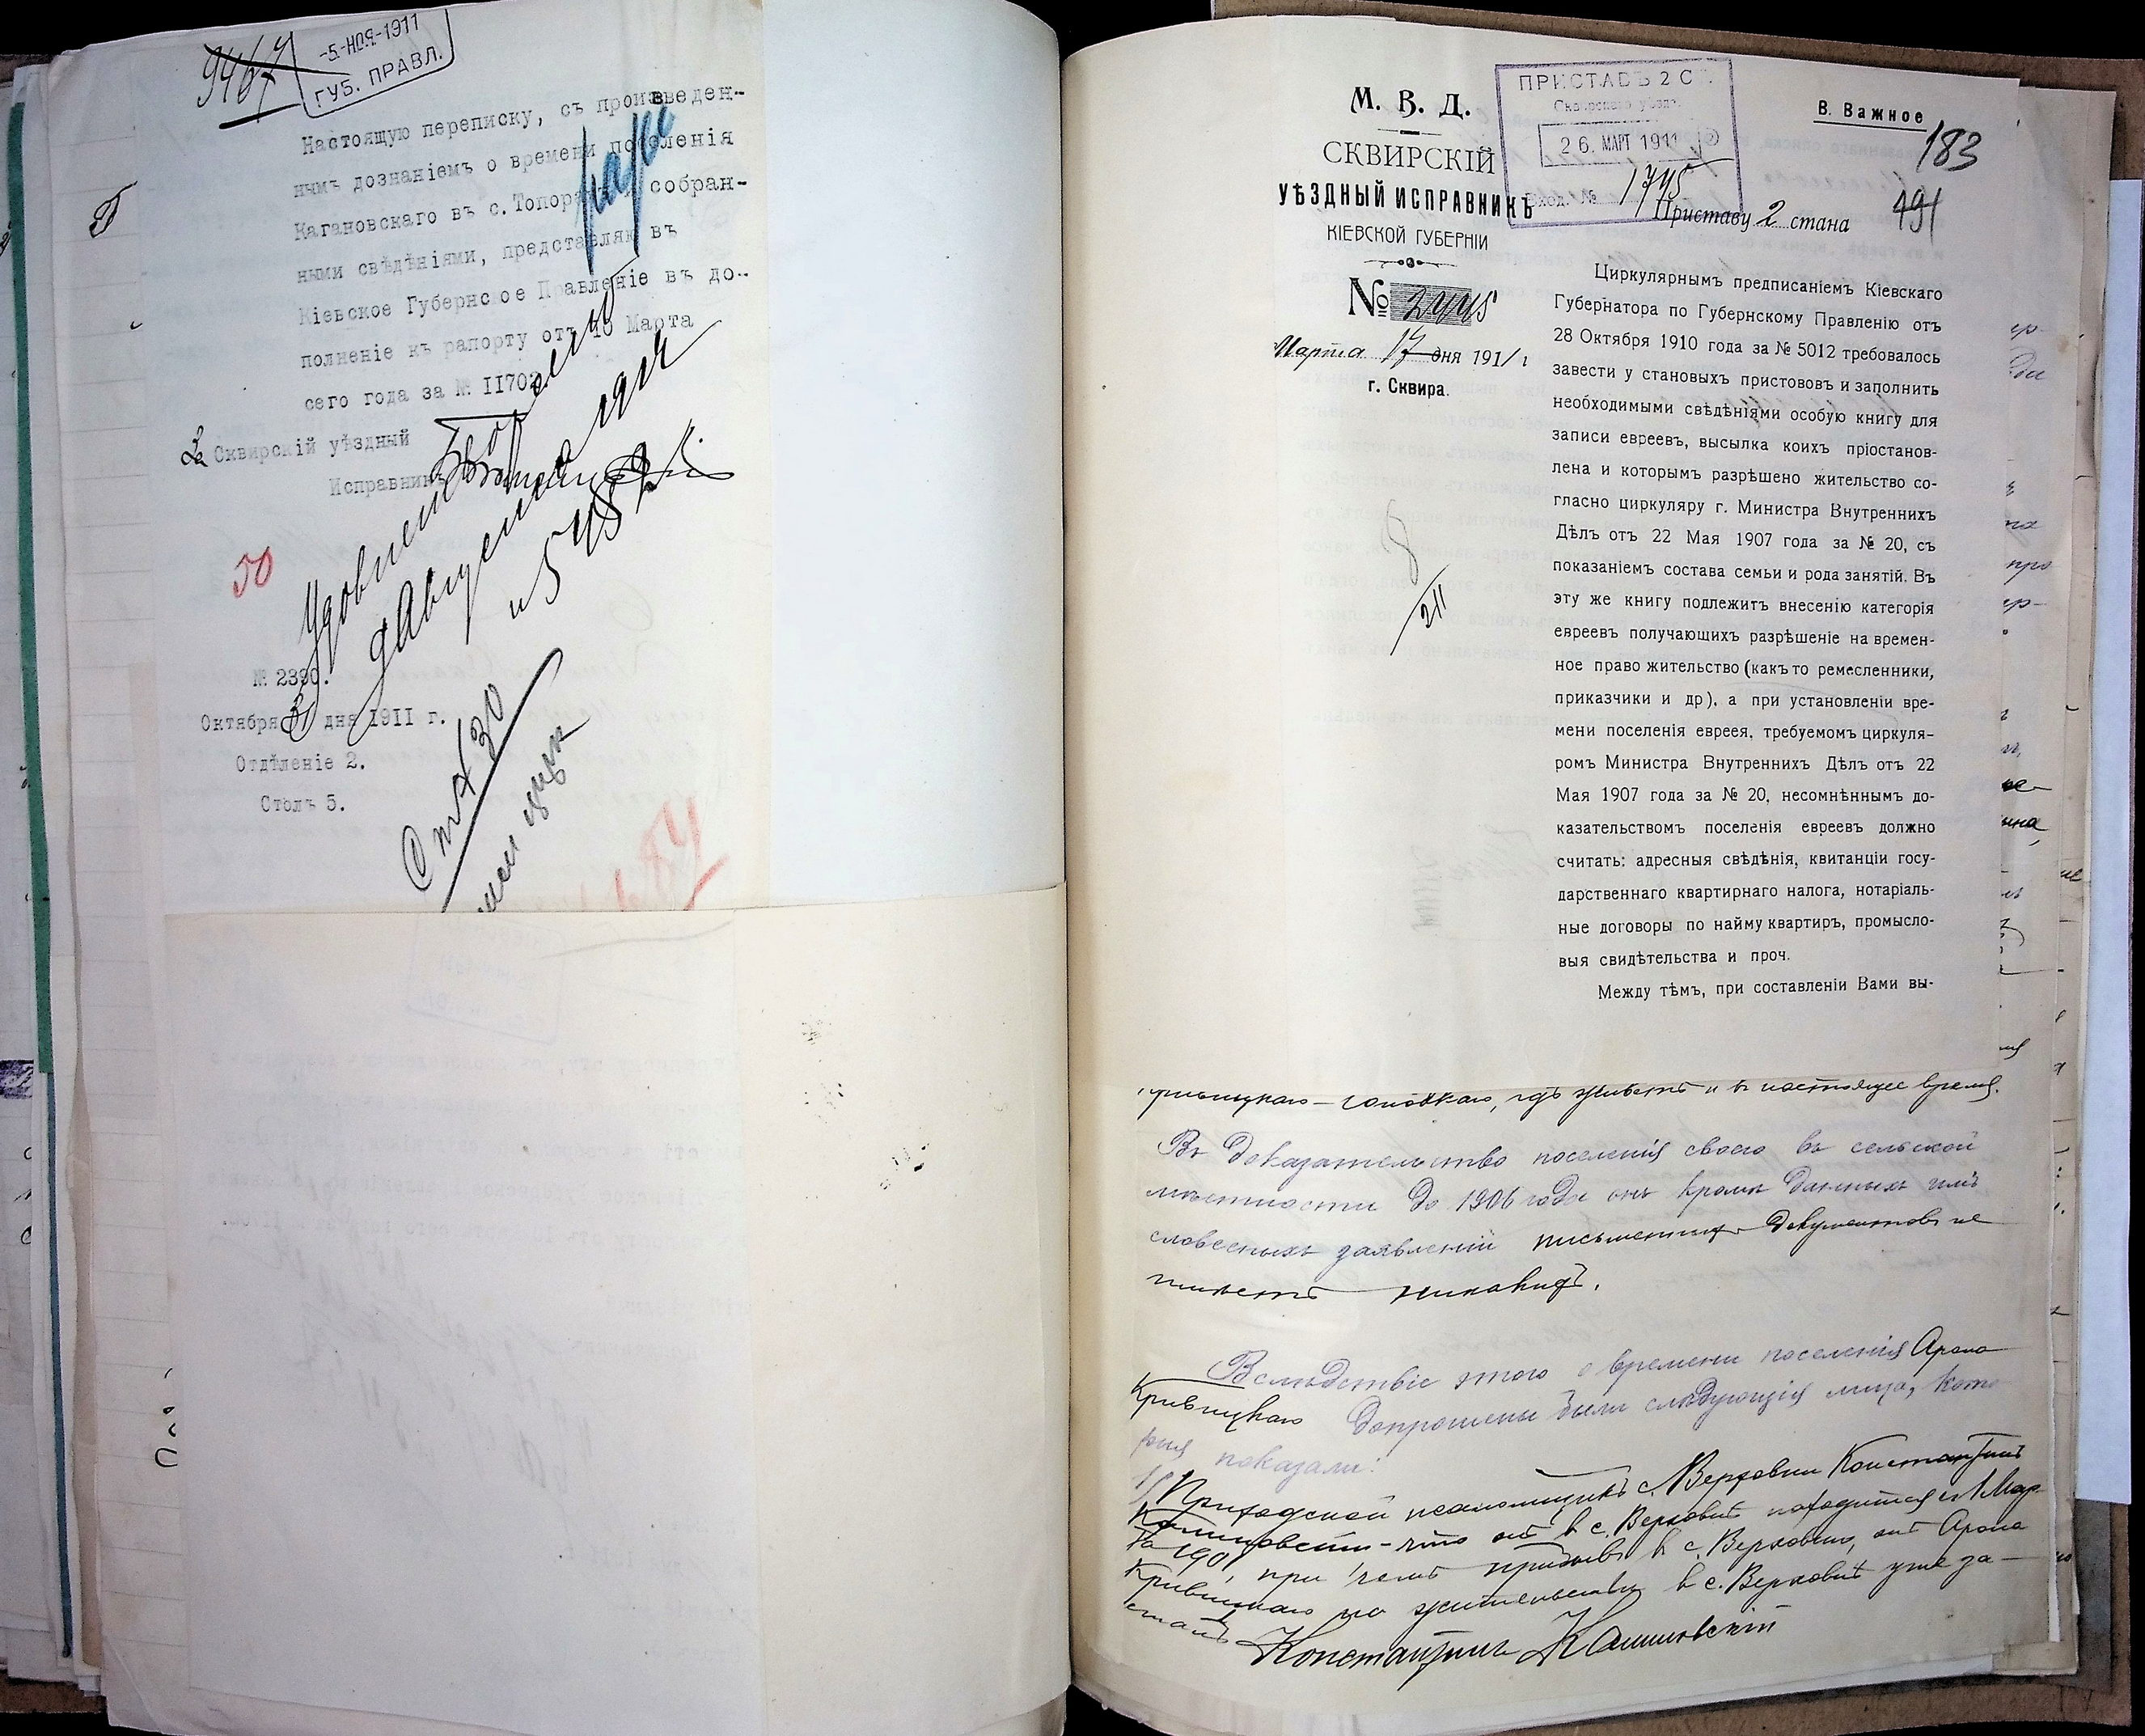 9467
-5-НОЯ-1911
ГУБ. ПРАВЛ.
Настоящую переписку, съ произведен-
нымъ дознаніемъ о времени поселенія
Кагановскаго въ с. Топорахъ, собран-
ными свѣдѣніями, представляю въ
Кіевское Губернское Правленіе въ до-
полненіе къ рапорту отъ 10 Марта
сего года за № II702.
За Сквирскій уѣздный
Исправникъ
50
№ 2390.
Октября 31 дня 1911 г.
Отдѣленіе 2.
Столъ 5.
М. В. Д.
СКВИРСКІЙ
УѢЗДНЫЙ ИСПРАВНИКЪ
КІЕВСКОЙ ГУБЕРНІИ
№ 2445
Марта 17 дня 1911 г
г. Сквира.
ПРИСТАВЪ 2 СТ.
Сквирскаго уѣзда.
26. МАРТ 1911
Вход. № 1745
В. Важное
183
491
Приставу 2 стана
Циркулярнымъ предписаніемъ Кіевскаго
Губернатора по Губернскому Правленію отъ
28 Октября 1910 года за № 5012 требовалось
завести у становыхъ пристововъ и заполнить
необходимыми свѣдѣніями особую книгу для
записи евреевъ, высылка коихъ пріостанов-
лена и которымъ разрѣшено жительство со-
гласно циркуляру г. Министра Внутреннихъ
Дѣлъ отъ 22 Мая 1907 года за № 20, съ
показаніемъ состава семьи и рода занятій. Въ
эту же книгу подлежитъ внесенію категорія
евреевъ получающихъ разрѣшеніе на времен-
ное право жительство (какъ то ремесленники,
приказчики и др), а при установленіи вре-
мени поселенія евреея, требуемомъ циркуля-
ромъ Министра Внутреннихъ Дѣлъ отъ 22
Мая 1907 года за № 20, несомнѣннымъ до-
казательствомъ поселенія евреевъ должно
считать: адресныя свѣдѣнія, квитанціи госу-
дарственнаго квартирнаго налога, нотаріаль-
ные договоры по найму квартиръ, промысло-
выя свидѣтельства и проч.
Между тѣмъ, при составленіи Вами вы-
гдѣ живетъ и въ настоящее время.
Въ доказательство поселенія своего въ сельской
мѣстности до 1906 года онъ кромѣ данныхъ имъ
словесныхъ заявленій письменныхъ документовъ не
имѣетъ никакихъ.
Вслѣдствіе этого о времени поселенія Арона
Кривицкаго допрошены были слѣдующія лица, кото
рыя показали:
1/ Приходской псаломщикъ с. Верховни Константинъ
что онъ въ с. Верховнѣ находится съ 1 Мар-
та 1901, при чемъ прибывъ въ с. Верховню, онъ Арона
Кривицкаго на жительствѣ въ с. Верховнѣ уже за-
сталъ
Константинъ